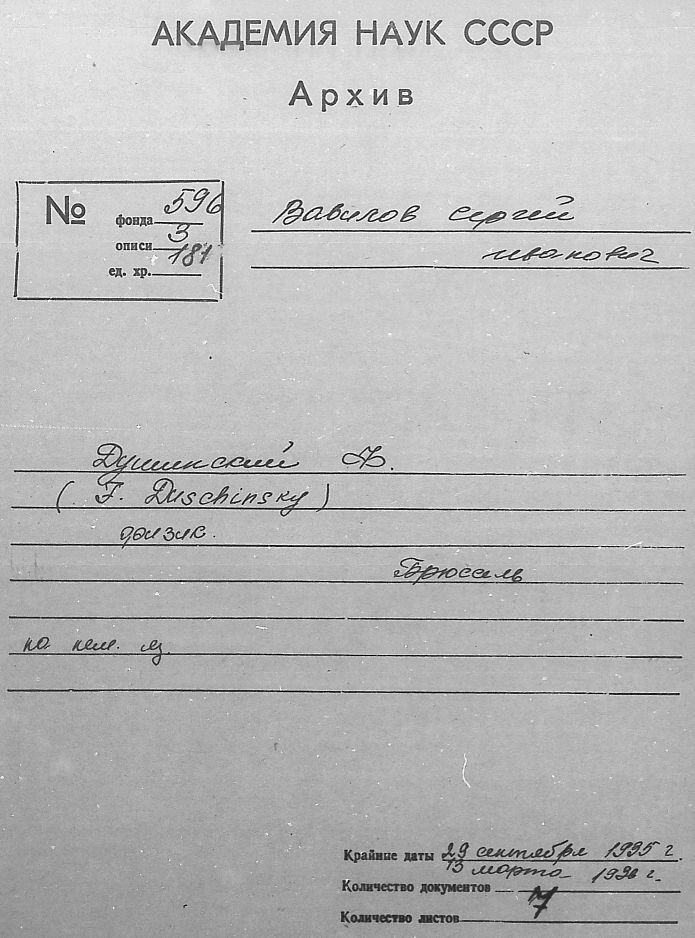 АКАДЕМИЯ НАУК СССР
Архив
№
фонда 596
описи 3
ед. хр. 181
Вавилов Сергей
Иванович
Душинский Ф.
(F. Duschinsky)
физик.
Брюссель
на нем. яз.
Крайние даты 29 сентября 1935 г.
13 марта 1936 г.
Количество документов
Количество листов 7